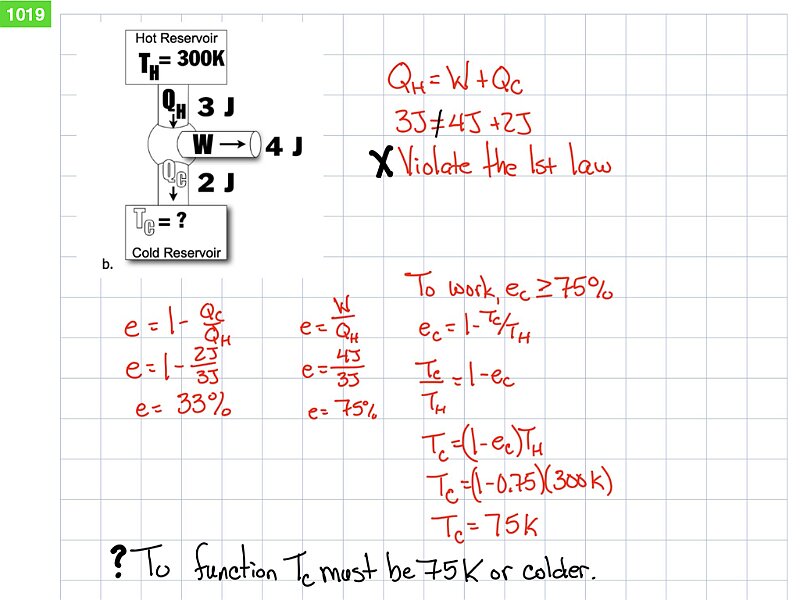 1019
Hot Reservoir
T_H = 300K
Q_H 3 J
W → 4 J
Q_C 2 J
T_C = ?
Cold Reservoir
b.
Q_H = W + Q_C
3J ≠ 4J + 2J
X Violate the 1st law
e = 1 - Q_C/Q_H
e = 1 - 2J/3J
e = 33%
e = W/Q_H
e = 4J/3J
e = 75%
To work, e_C ≥ 75%
e_C = 1 - T_C/T_H
T_C/T_H = 1 - e_C
T_C = (1 - e_C)T_H
T_C = (1 - 0.75)(300K)
T_C = 75K
? To function T_C must be 75K or colder.